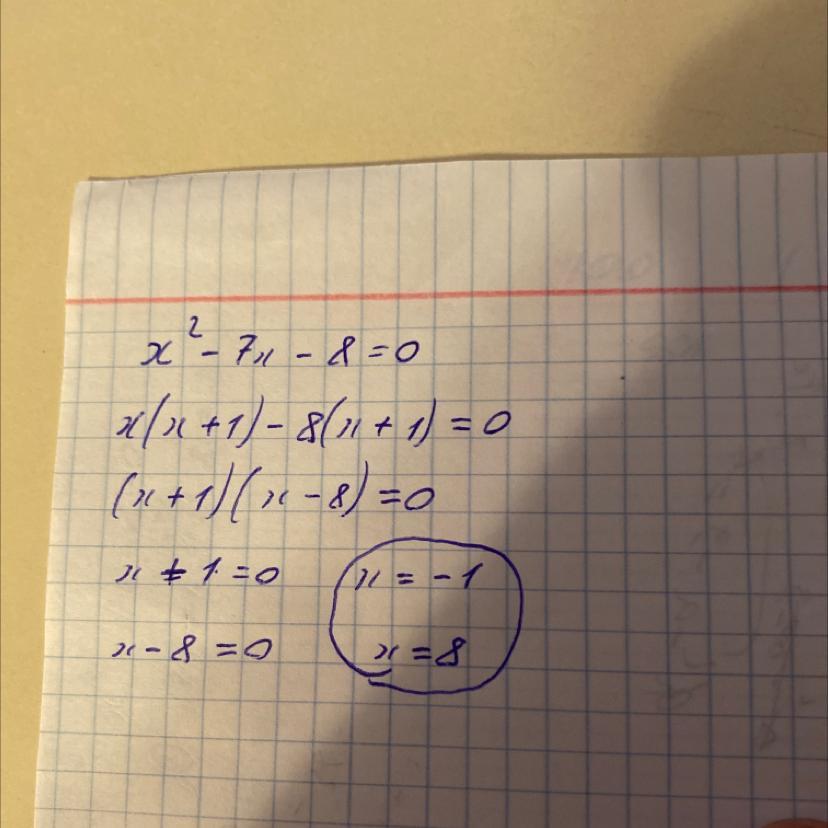 x² - 7x - 8 = 0
x(x + 1) - 8(x + 1) = 0
(x + 1)(x - 8) = 0
x + 1 = 0 x = -1
x - 8 = 0 x = 8